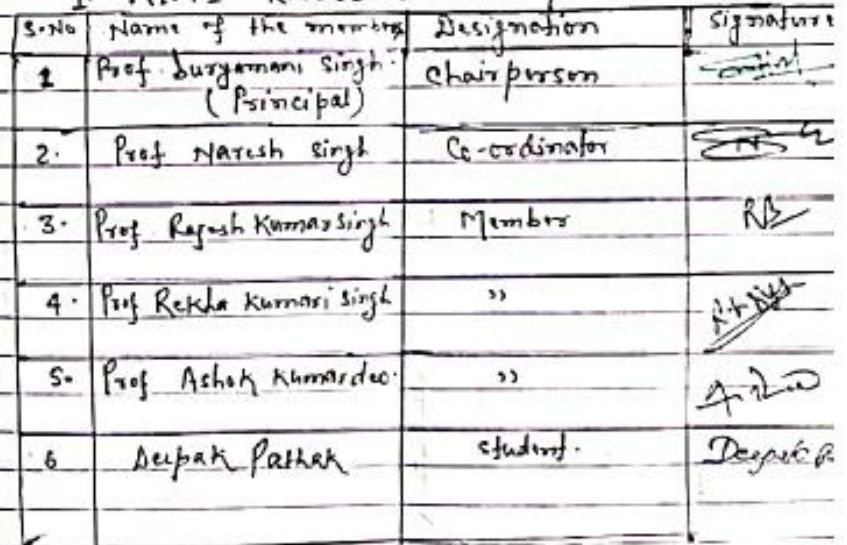 S.No Name of the members Designation Signature
1 Prof Suryamani Singh. Chairperson
(Principal)
2. Prof Naresh Singh Co-ordinator
3. Prof Rajesh Kumar Singh Member RB
4. Prof Rekha Kumari Singh ,,
5. Prof Ashok Kumar deo. ,,
6 Deepak Pathak Student. Deepak P